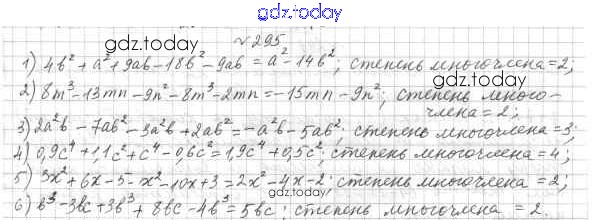 gdz.today
№ 295
gdz.today
1) 4b² + a² + 9ab - 18b² - 9ab = a² - 14b²; степень многочлена = 2;
gdz.today
2) 8m³ - 13mn - 9n² - 8m³ - 2mn = -15mn - 9n²; степень много-
члена = 2;
3) 2a²b - 7ab² - 3a²b + 2ab² = -a²b - 5ab²; степень многочлена = 3;
4) 0,9c⁴ + 1,1c² + c⁴ - 0,6c² = 1,9c⁴ + 0,5c²; степень многочлена = 4;
gdz.today
gdz.today
5) 3x² + 6x - 5 - x² - 10x + 3 = 2x² - 4x - 2; степень многочлена = 2;
6) b³ - 3bc + 3b³ + 8bc - 4b³ = 5bc; степень многочлена = 2.
gdz.today